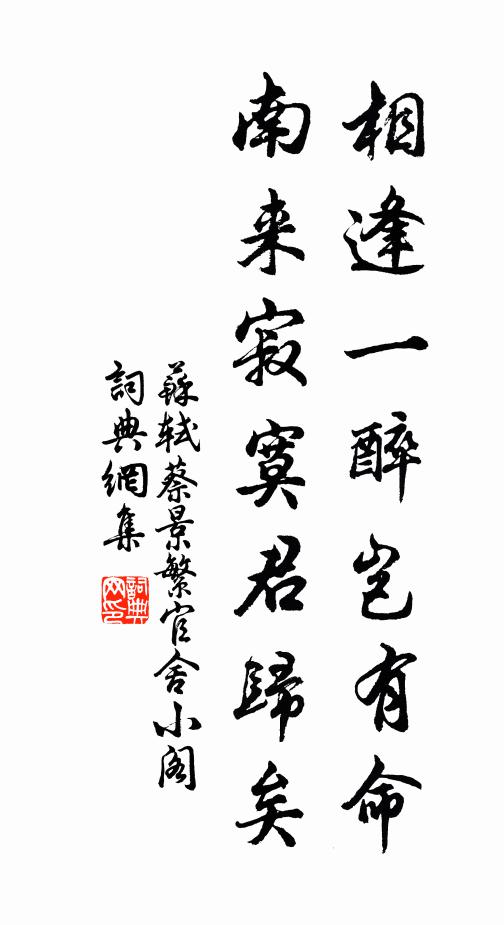 相逢一醉岂有命
南来寂寞君歸矣
蘇軾蔡景繁官舍小阁
詞典網集
詞典网印